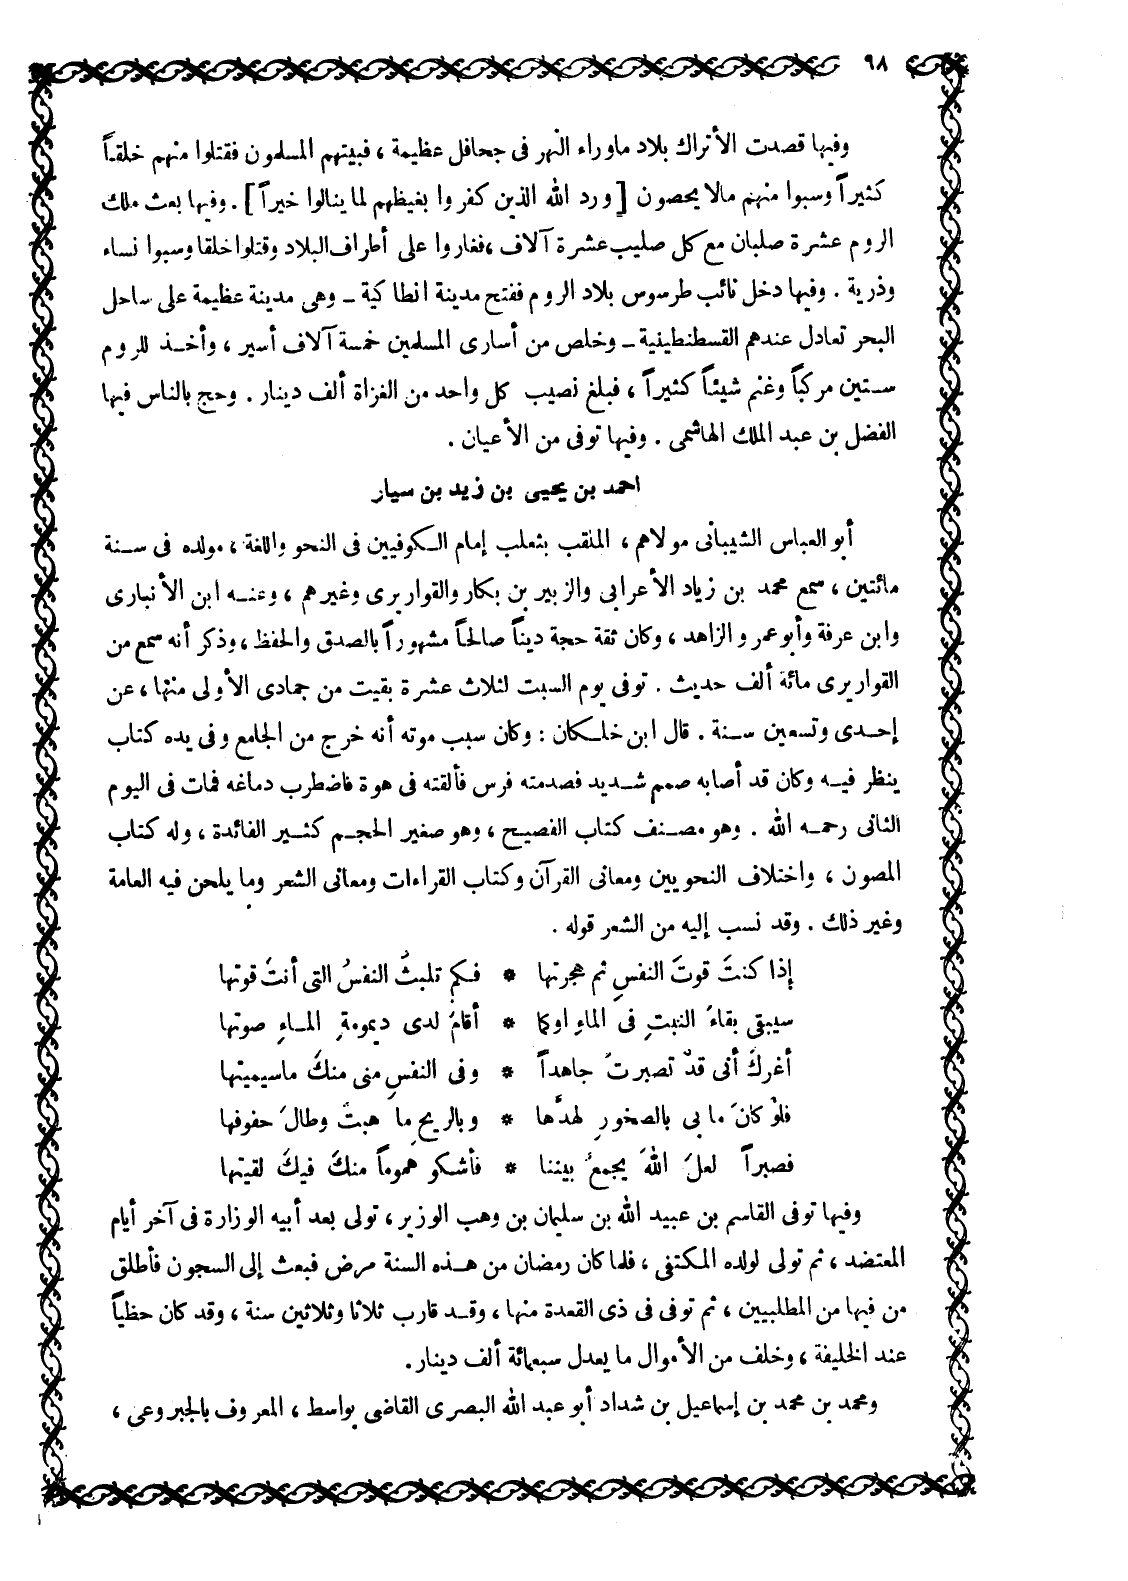 ٩٨
وفيها قصدت الأتراك بلاد ماوراء النهر فى جحافل عظيمة ، فبيتهم المسلمون فقتلوا منهم خلقاً
كثيراً وسبوا منهم مالا يحصون [ ورد الله الذين كفروا بغيظهم لم ينالوا خيراً ] . وفيها بعث ملك
الروم عشرة صلبان مع كل صليب عشرة آلاف ، فغاروا على أطراف البلاد وقتلوا خلقا وسبوا نساء
وذرية . وفيها دخل نائب طرسوس بلاد الروم ففتح مدينة انطاكية ــ وهى مدينة عظيمة على ساحل
البحر تعادل عندهم القسطنطينية ــ وخلص من أسارى المسلمين خمسة آلاف أسير ، وأخذ للروم
ستين مركباً وغنم شيئاً كثيراً ، فبلغ نصيب كل واحد من الغزاة ألف دينار . وحج بالناس فيها
الفضل بن عبد الملك الهاشمى . وفيها توفى من الأعيان .
احمد بن يحيى بن زيد بن سيار
أبو العباس الشيبانى مولاهم ، الملقب بثعلب إمام الكوفيين فى النحو واللغة ، مولده فى سنة
مائتين ، سمع محمد بن زياد الأعرابى والزبير بن بكار والقواريرى وغيرهم ، وعنه ابن الأنبارى
وابن عرفة وأبو عمرو الزاهد ، وكان ثقة حجة ديناً صالحاً مشهوراً بالصدق والحفظ ، وذكر أنه سمع من
القواريرى مائة ألف حديث . توفى يوم السبت لثلاث عشرة بقيت من جمادى الأولى منها ، عن
إحدى وتسعين سنة . قال ابن خلكان : وكان سبب موته أنه خرج من الجامع وفى يده كتاب
ينظر فيه وكان قد أصابه صمم شديد فصدمته فرس فألقته فى هوة فاضطرب دماغه فمات فى اليوم
الثانى رحمه الله . وهو مصنف كتاب الفصيح ، وهو صغير الحجم كثير الفائدة ، وله كتاب
المصون ، واختلاف النحويين ومعانى القرآن وكتاب القراءات ومعانى الشعر وما يلحن فيه العامة
وغير ذلك . وقد نسب إليه من الشعر قوله .
إذا كنتَ قوتَ النفسِ ثم هجرتها * فكم تلبثُ النفسُ التى أنتَ قوتها
سيبقى بقاءَ النبتِ فى الماءِ اوكما * أقامَ لدى ديمومةِ الماءِ صوتها
أغركَ أنى قدْ تصبرتُ جاهداً * وفى النفسِ منى منكَ ماسيميتها
فلوْ كانَ ما بى بالصخورِ لهدَّها * وبالريحِ ما هبتْ وطالَ حفوفها
فصبراً لعلَ اللهَ يجمعُ بيننا * فأشكو هموماً منكَ فيكَ لقيتها
وفيها توفى القاسم بن عبيد الله بن سليمان بن وهب الوزير ، تولى بعد أبيه الوزارة فى آخر أيام
المعتضد ، ثم تولى لولده المكتفى ، فلما كان رمضان من هذه السنة مرض فبعث إلى السجون فأطلق
من فيها من المطلبيين ، ثم توفى فى ذى القعدة منها ، وقد قارب ثلاثا وثلاثين سنة ، وقد كان حظياً
عند الخليفة ، وخلف من الأموال ما يعدل سبعمائة ألف دينار.
ومحمد بن محمد بن إسماعيل بن شداد أبو عبد الله البصرى القاضى بواسط ، المعروف بالجبروعى ،